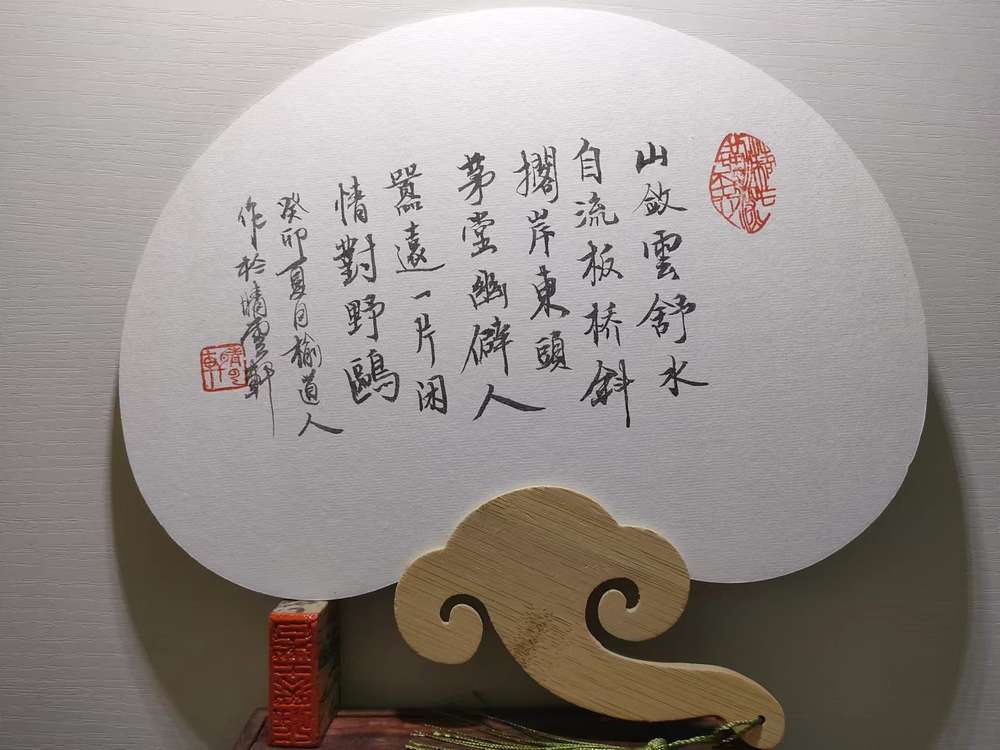 山斂雲舒水
自流板桥斜
擱岸東頭
茅堂幽僻人
囂遠一片闲
情對野鷗
癸卯夏月榆道人
作於晴雲軒